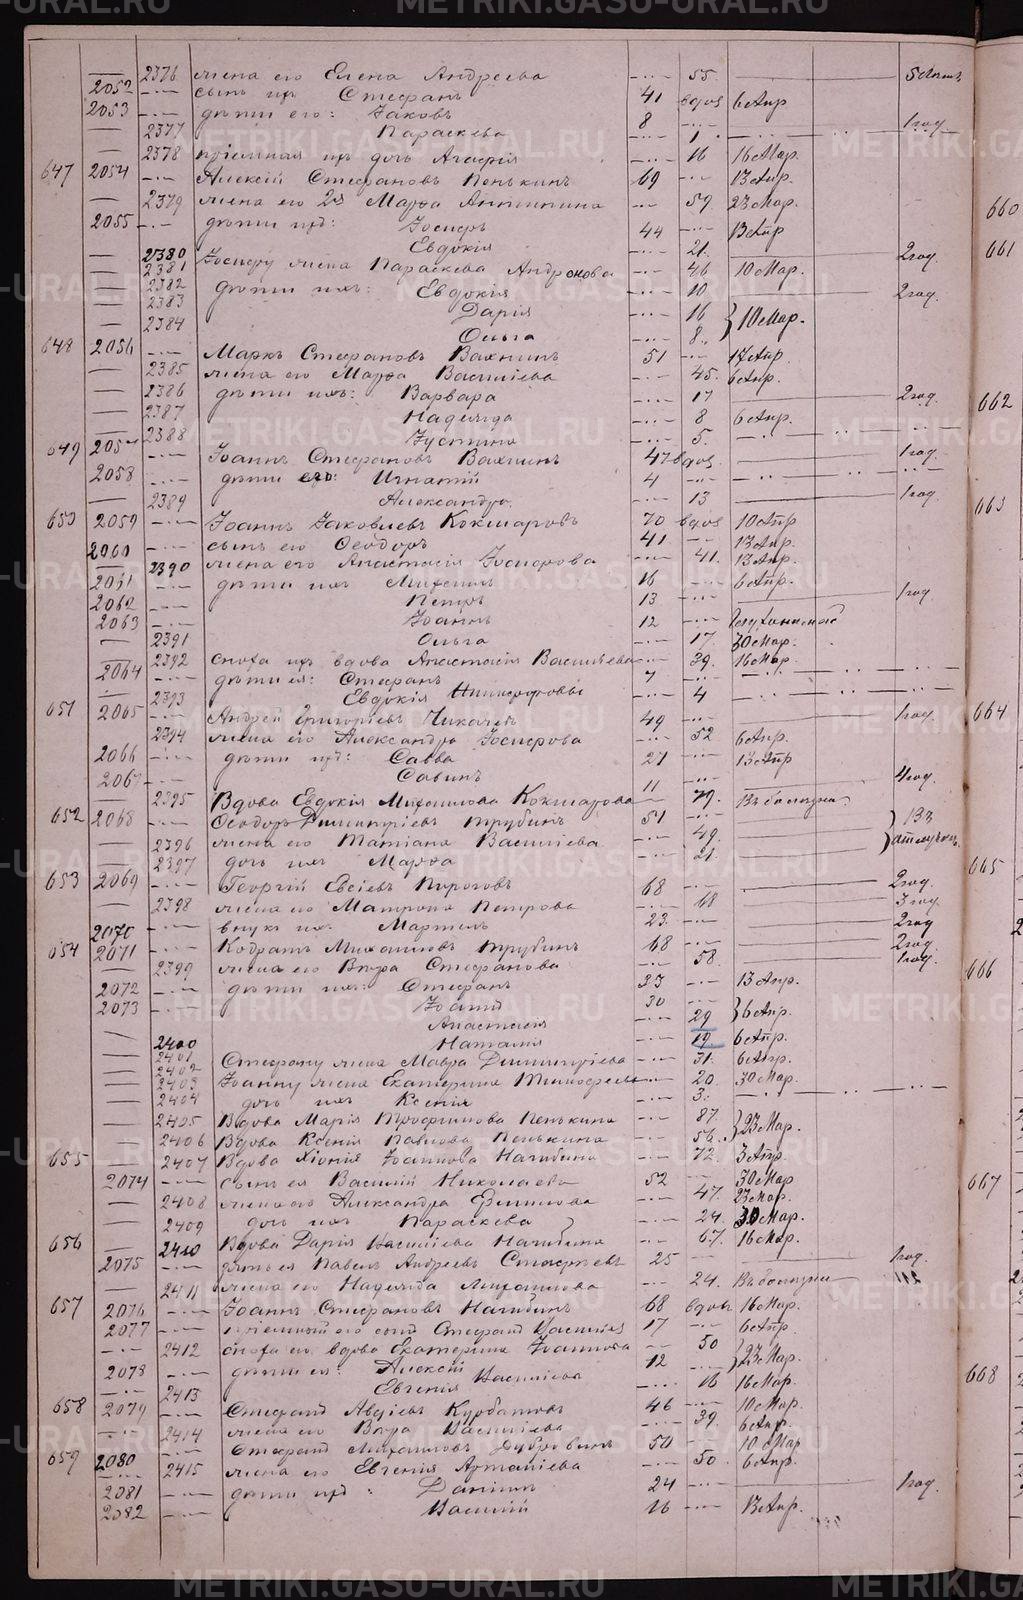 METRIKI.GASO-URAL.RU METRIKI.GASO-URAL.RU
— 2376 жена его Елена Андреева — 55
2052 — сынъ ихъ Стефанъ 41 вдов 6 Апр
2053 — дѣти его: Іаковъ 8 — 1 год
— 2377 Параскева — 1
— 2378 пріемная ихъ дочь Агафія — 16 16 Мар.
647 2054 — Алексій Стефановъ Пенькинъ 69 — 13 Апр.
— 2379 жена его 2я Марѳа Антипина — 59 23 Мар.
2055 — дѣти ихъ: Іосифъ 44 — 13 Апр
— 2380 Евдокія — 21 2 год.
— 2381 Іосифу жена Параскева Андронова — 46 10 Мар.
— 2382 дѣти ихъ: Евдокія — 10 2 год.
— 2383 Дарія — 16 10 Мар.
— 2384 Ольга — 8
648 2056 — Маркъ Стефановъ Вахнинъ 51 — 17 Апр.
— 2385 жена его Марѳа Василіева — 45 6 Апр.
— 2386 дѣти ихъ: Варвара — 17 2 год.
— 2387 Надежда — 8 6 Апр.
— 2388 Іустина — 5
649 2057 — Іоаннъ Стефановъ Вахнинъ 47 вдов. 1 год.
2058 — дѣти его: Игнатій 4 —
— 2389 Александра — 13 1 год.
653 2059 — Іоаннъ Іаковлевъ Кокшаровъ 70 вдов 10 Апр
2060 — сынъ его Ѳеодоръ 41 — 13 Апр.
— 2390 жена его Анастасія Іосифова — 41 13 Апр.
2061 — дѣти ихъ Михаилъ 16 — 6 Апр.
2062 — Петръ 13 — 1 год.
2063 — Іоаннъ 12 —
— 2391 Ольга — 17 30 Мар.
— 2392 сноха ихъ вдова Анастасія Василіева — 39 16 Мар.
2064 — дѣти ея: Стефанъ 7 —
— 2393 Евдокія Никифоровы — 4
651 2065 — Андрей Григоріевъ Чикачевъ 49 — 1 год.
— 2394 жена его Александра Іосифова — 52 6 Апр.
2066 — дѣти ихъ: Савва 21 — 13 Апр
2067 — Савинъ 11 — 4 год.
— 2395 Вдова Евдокія Михаилова Кокшарова — 79 Въ болѣзни
652 2068 — Ѳеодоръ Димитріевъ Трубинъ 51 — Въ
— 2396 жена его Татіана Василіева — 49 отлучкѣ.
— 2397 дочь ихъ Марѳа — 21
653 2069 — Георгій Евсіевъ Пироговъ 68 — 2 год.
— 2398 жена его Матрона Петрова — 68 3 год
2070 — внукъ ихъ Мартинъ 23 — 2 год
654 2071 — Кодратъ Михаиловъ Трубинъ 68 — 2 год.
— 2399 жена его Вѣра Стефанова — 58 1 год.
2072 — дѣти ихъ: Стефанъ 33 — 13 Апр.
2073 — Іоаннъ 30 — 6 Апр.
— Анастасія — 29
— 2400 Наталія — 19 6 Апр.
— 2401 Стефану жена Мавра Димитріева — 31 6 Апр.
— 2402 Іоанну жена Екатерина Тимофеева — 20 30 Мар.
— 2403 дочь ихъ Ксенія — 3
— 2404
— 2405 Вдова Марія Трофимова Пенькина — 87 23 Мар.
— 2406 Вдова Ксенія Павлова Пенькина — 56
655 — 2407 Вдова Хіонія Іоаннова Нагибина — 72 3 Апр.
2074 — сынъ ея Василій Николаевъ 52 — 30 Мар
— 2408 жена его Александра — 47 23 Мар.
— 2409 дочь ихъ Параскева — 24 30 Мар.
656 — 2410 Вдова Дарія Василіева Нагибина — 67 16 Мар.
2075 — зять ея Павелъ Андреевъ 25 — 1 год.
— 2411 жена его Надежда Михаилова — 24 Въ болѣзни
657 2076 — Іоаннъ Стефановъ Нагибинъ 68 вдов 16 Мар.
2077 — пріемный его сынъ Стефанъ Василіев 17 — 6 Апр.
— 2412 сноха его вдова Екатерина Іоаннова — 50 23 Мар.
2078 — дѣти ея: Алексій Василіевы 12 —
— 2413 Евгенія — 16 16 Мар.
658 2079 — Стефанъ Авдіевъ Курбатовъ 46 — 10 Мар.
— 2414 жена его Вѣра Василіева — 39 6 Апр.
659 2080 — Стефанъ Михаиловъ Дубровинъ 50 — 10 Мар
— 2415 жена его Евгенія Артаміева — 50 6 Апр.
2081 — дѣти ихъ: Даніилъ 24 — 1 год.
2082 — Василій 16 — 13 Апр.
660
661
662
663
664
665
666
667
668
METRIKI.GASO-URAL.RU